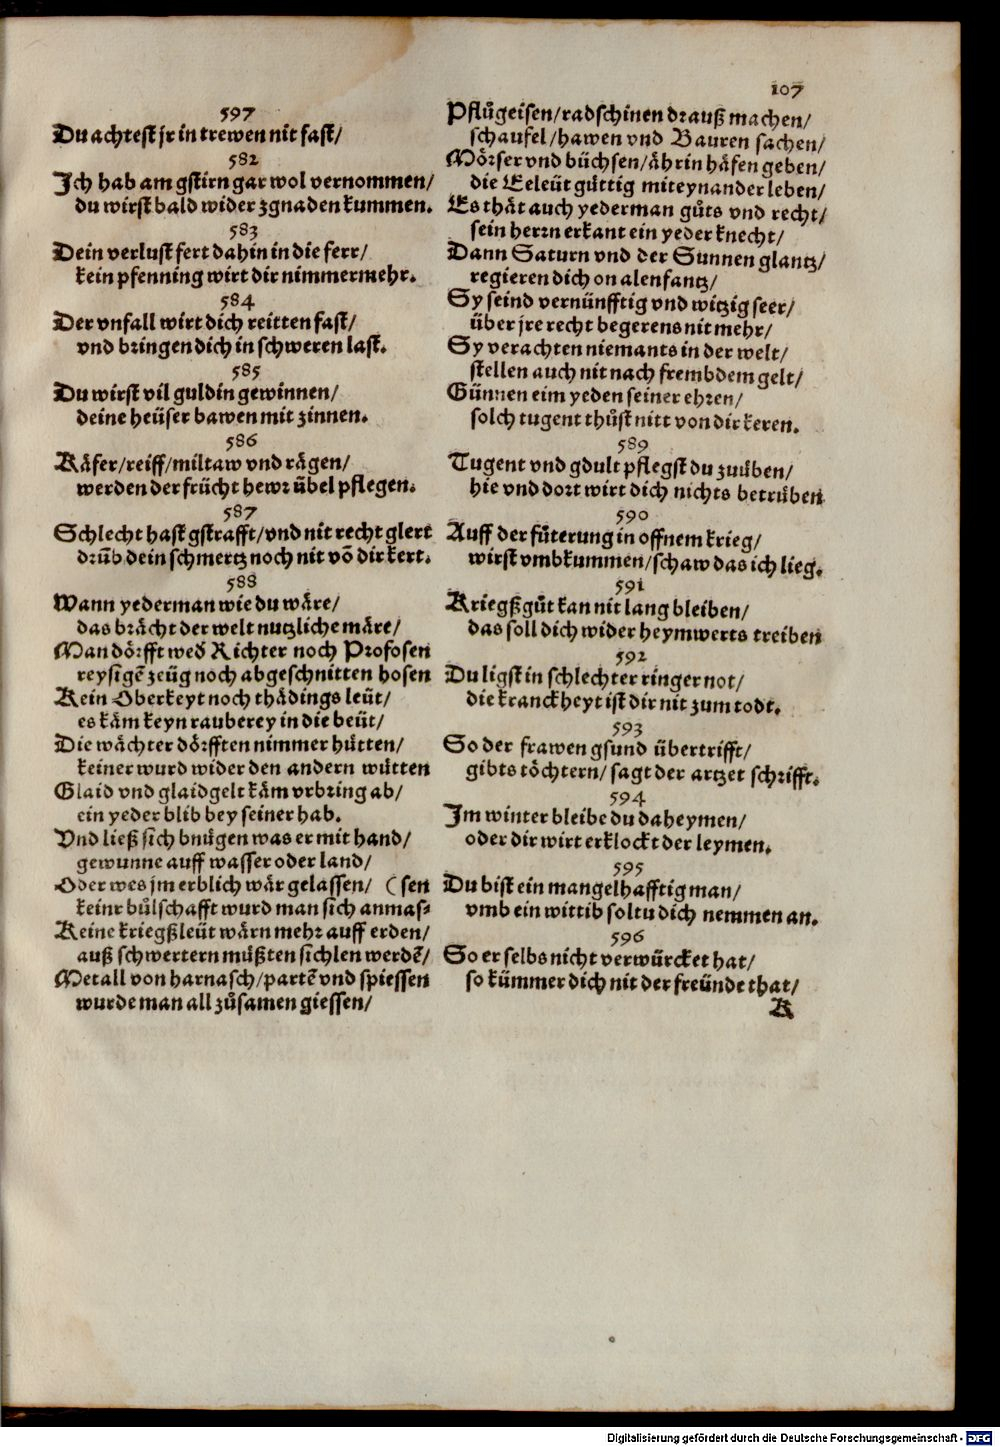 107
597
Du achtest jr in trewen nit fast/
582
Ich hab am gstirn gar wol vernommen/
du wirst bald wider zgnaden kummen.
583
Dein verlust fert dahin in die ferr/
kein pfenning wirt dir nimmermehr.
584
Der vnfall wirt dich reitten fast/
vnd bringen dich in schweren last.
585
Du wirst vil guldin gewinnen/
deine heüser bawen mit zinnen.
586
Käfer/reiff/miltaw vnd rägen/
werden der frücht hewr übel pflegen.
587
Schlecht hast gstrafft/vnd nit recht glert
drüb dein schmertz noch nit võ dir kert.
588
Wann yederman wie du wäre/
das brächt der welt nutzliche märe/
Man dörfft wed' Richter noch Profosen
reysigẽ zeüg noch abgeschnitten hosen
Kein Oberkeyt noch thädings leüt/
es käm keyn rauberey in die beüt/
Die wächter dörfften nimmer hütten/
keiner wurd wider den andern wütten
Glaid vnd glaidgelt käm vrbring ab/
ein yeder blib bey seiner hab.
Vnd ließ sich bnügen was er mit hand/
gewunne auff wasser oder land/
Oder wes jm erblich wär gelassen/ (sen
keinr bůlschafft wurd man sich anmas⸗
Keine kriegßleüt wärn mehr auff erden/
auß schwertern müßten sichlen werdẽ/
Metall von harnasch/partẽ vnd spiessen
wurde man all zůsamen giessen/
Pflůgeisen/radschinen drauß machen/
schaufel/hawen vnd Bauren sachen/
Mörser vnd büchsen/ährin häfen geben/
die Eeleüt güttig miteynander leben/
Es thät auch yederman gůts vnd recht/
sein herrn erkant ein yeder knecht/
Dann Saturn vnd der Sunnen glantz/
regieren dich on alenfantz/
Sy seind vernünfftig vnd witzig seer/
über jre recht begerens nit mehr/
Sy verachten niemants in der welt/
stellen auch nit nach frembdem gelt/
Günnen eim yeden seiner ehren/
solch tugent thůst nitt von dir keren.
589
Tugent vnd gdult pflegst du zuüben/
hie vnd dort wirt dich nichts betrüben
590
Auff der fůterung in offnem krieg/
wirst vmbkummen/schaw das ich lieg.
591
Kriegßgůt kan nit lang bleiben/
das soll dich wider heymwerts treiben
592
Du ligst in schlechter ringer not/
die kranckheyt ist dir nit zum todt.
593
So der frawen gsund übertrifft/
gibts töchtern/ sagt der artzet schrifft.
594
Im winter bleibe du daheymen/
oder dir wirt erklockt der leymen.
595
Du bist ein mangelhafftig man/
vmb ein wittib soltu dich nemmen an.
596
So er selbs nicht verwürcket hat/
so kümmer dich nit der freünde that/
K
Digitalisierung gefördert durch die Deutsche Forschungsgemeinschaft - DFG